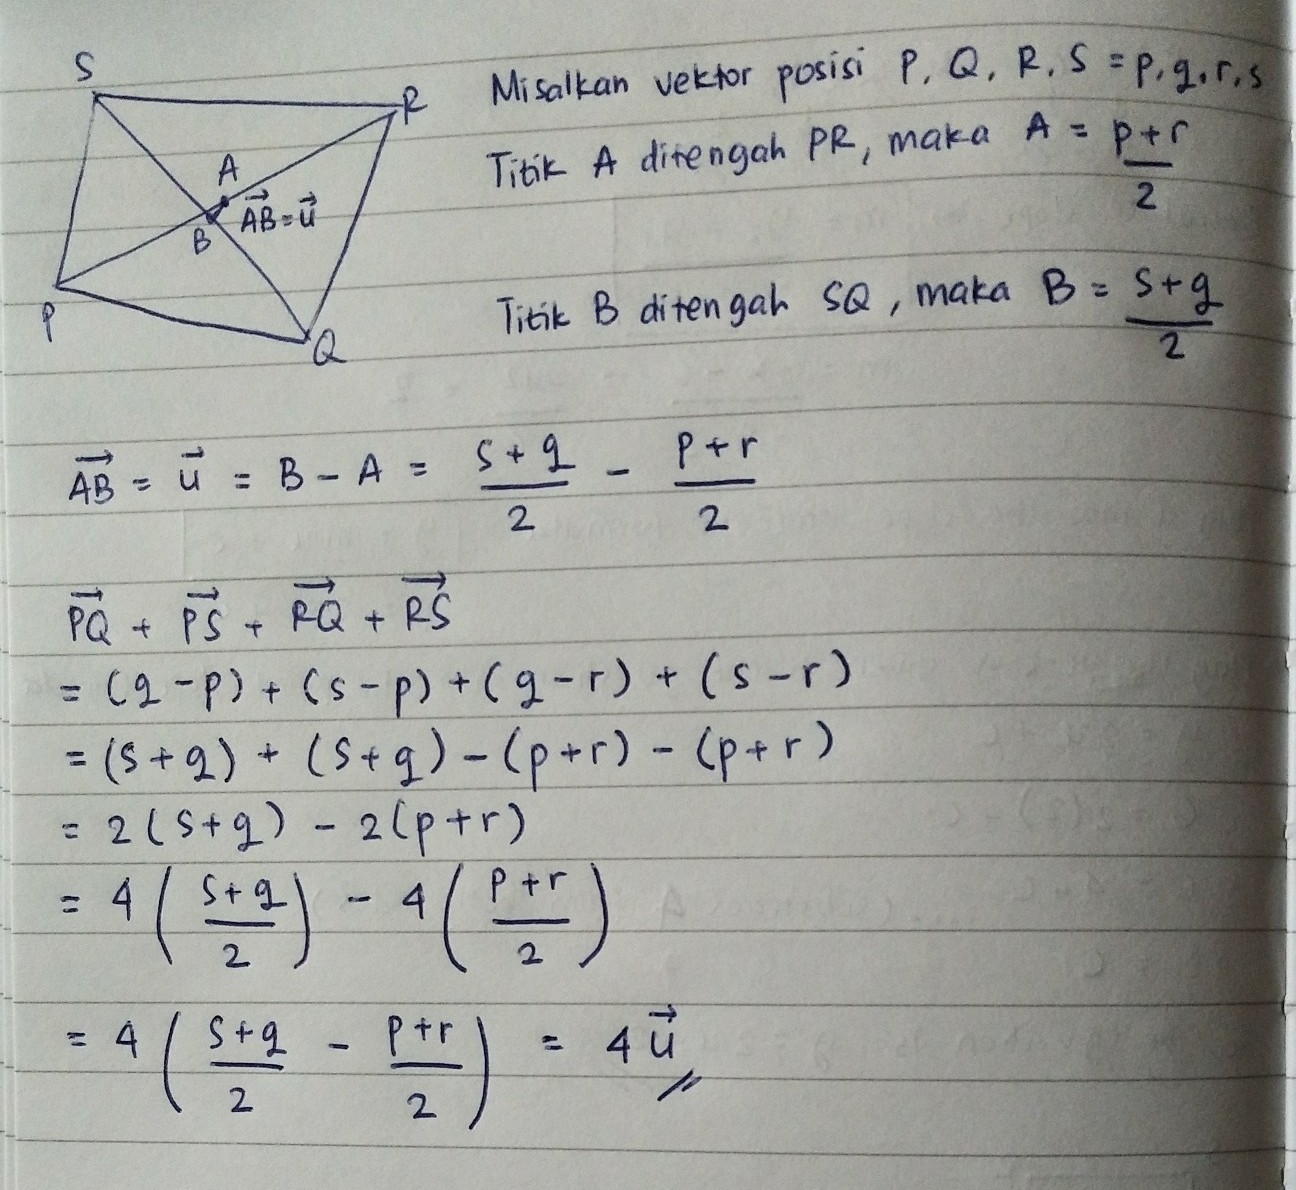 S
R
A
AB = u
B
P
Q
Misalkan vektor posisi P, Q, R, S = p, q, r, s
Titik A ditengah PR, maka A = p+r/2
Titik B ditengah SQ, maka B = s+q/2
AB = u = B - A = s+q/2 - p+r/2
PQ + PS + RQ + RS
= (q - p) + (s - p) + (q - r) + (s - r)
= (s + q) + (s + q) - (p + r) - (p + r)
= 2(s+q) - 2(p+r)
= 4(s+q/2) - 4(p+r/2)
= 4(s+q/2 - p+r/2) = 4u